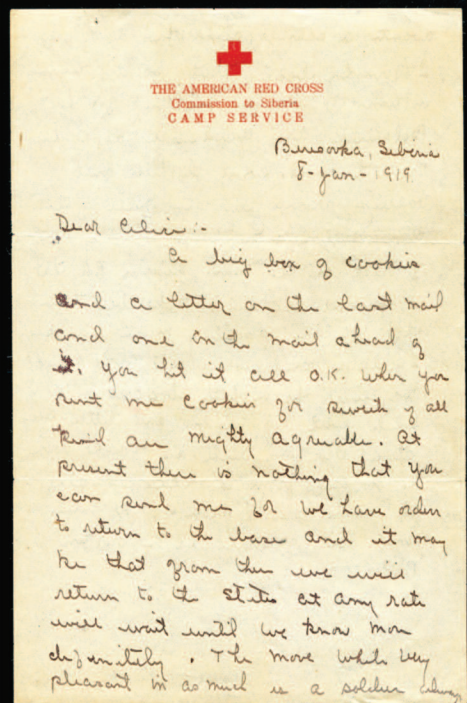 THE AMERICAN RED CROSS
Commission to Siberia
CAMP SERVICE
Beresovka, Siberia
8-Jan-1919
Dear
A big box of cookies
and a letter on the last mail
and one on the mail ahead of
it. You hit it all O.K. when you
sent me cookies for sweets of all
kind are mighty agreeable. At
present there is nothing that you
can send me for we have orders
to return to the base and it may
be that from there we will
return to the States at any rate
will wait until we know more
definitely. The move while very
pleasant in as much as a soldier always